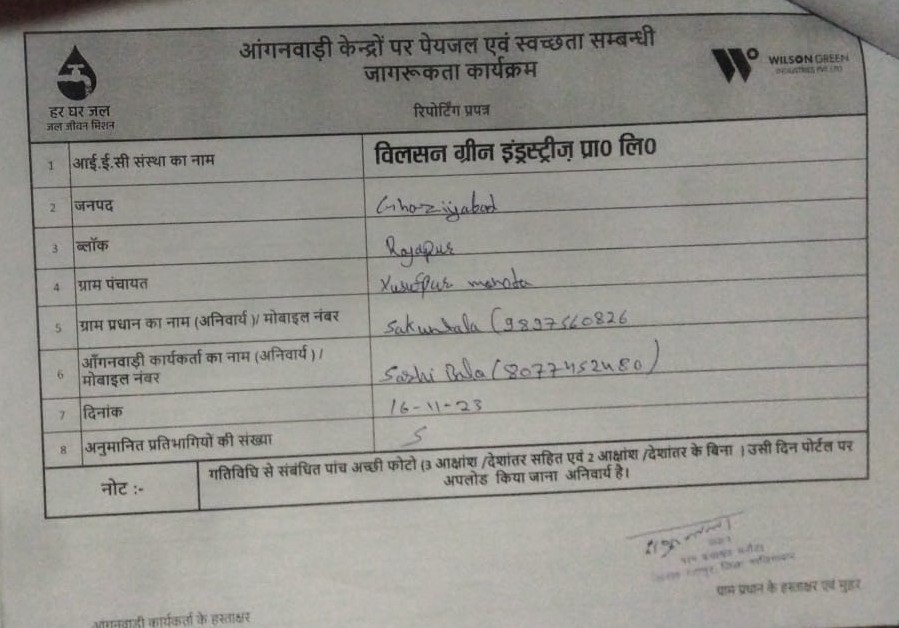 आंगनवाड़ी केन्द्रों पर पेयजल एवं स्वच्छता सम्बन्धी
जागरूकता कार्यक्रम
रिपोर्टिंग प्रपत्र
हर घर जल
जल जीवन मिशन
WILSON GREEN
INDUSTRIES PVT LTD
1 आई.ई.सी संस्था का नाम विलसन ग्रीन इंड्रस्ट्रीज़ प्रा0 लि0
2 जनपद Ghaziyabad
3 ब्लॉक Rajapur
4 ग्राम पंचायत Yusufpur manota
5 ग्राम प्रधान का नाम (अनिवार्य )/ मोबाइल नंबर Sakuntala (9897560826
6 आँगनवाड़ी कार्यकर्ता का नाम (अनिवार्य ) /
मोबाइल नंबर Sashi Bala (8077452480)
7 दिनांक 16-11-23
8 अनुमानित प्रतिभागियों की संख्या 5
नोट :- गतिविधि से संबंधित पांच अच्छी फोटो (3 आक्षांश /देशांतर सहित एवं 2 आक्षांश /देशांतर के बिना ) उसी दिन पोर्टल पर
अपलोड किया जाना अनिवार्य है।
ग्राम प्रधान के हस्ताक्षर एवं मुहर
आंगनवाड़ी कार्यकर्ता के हस्ताक्षर